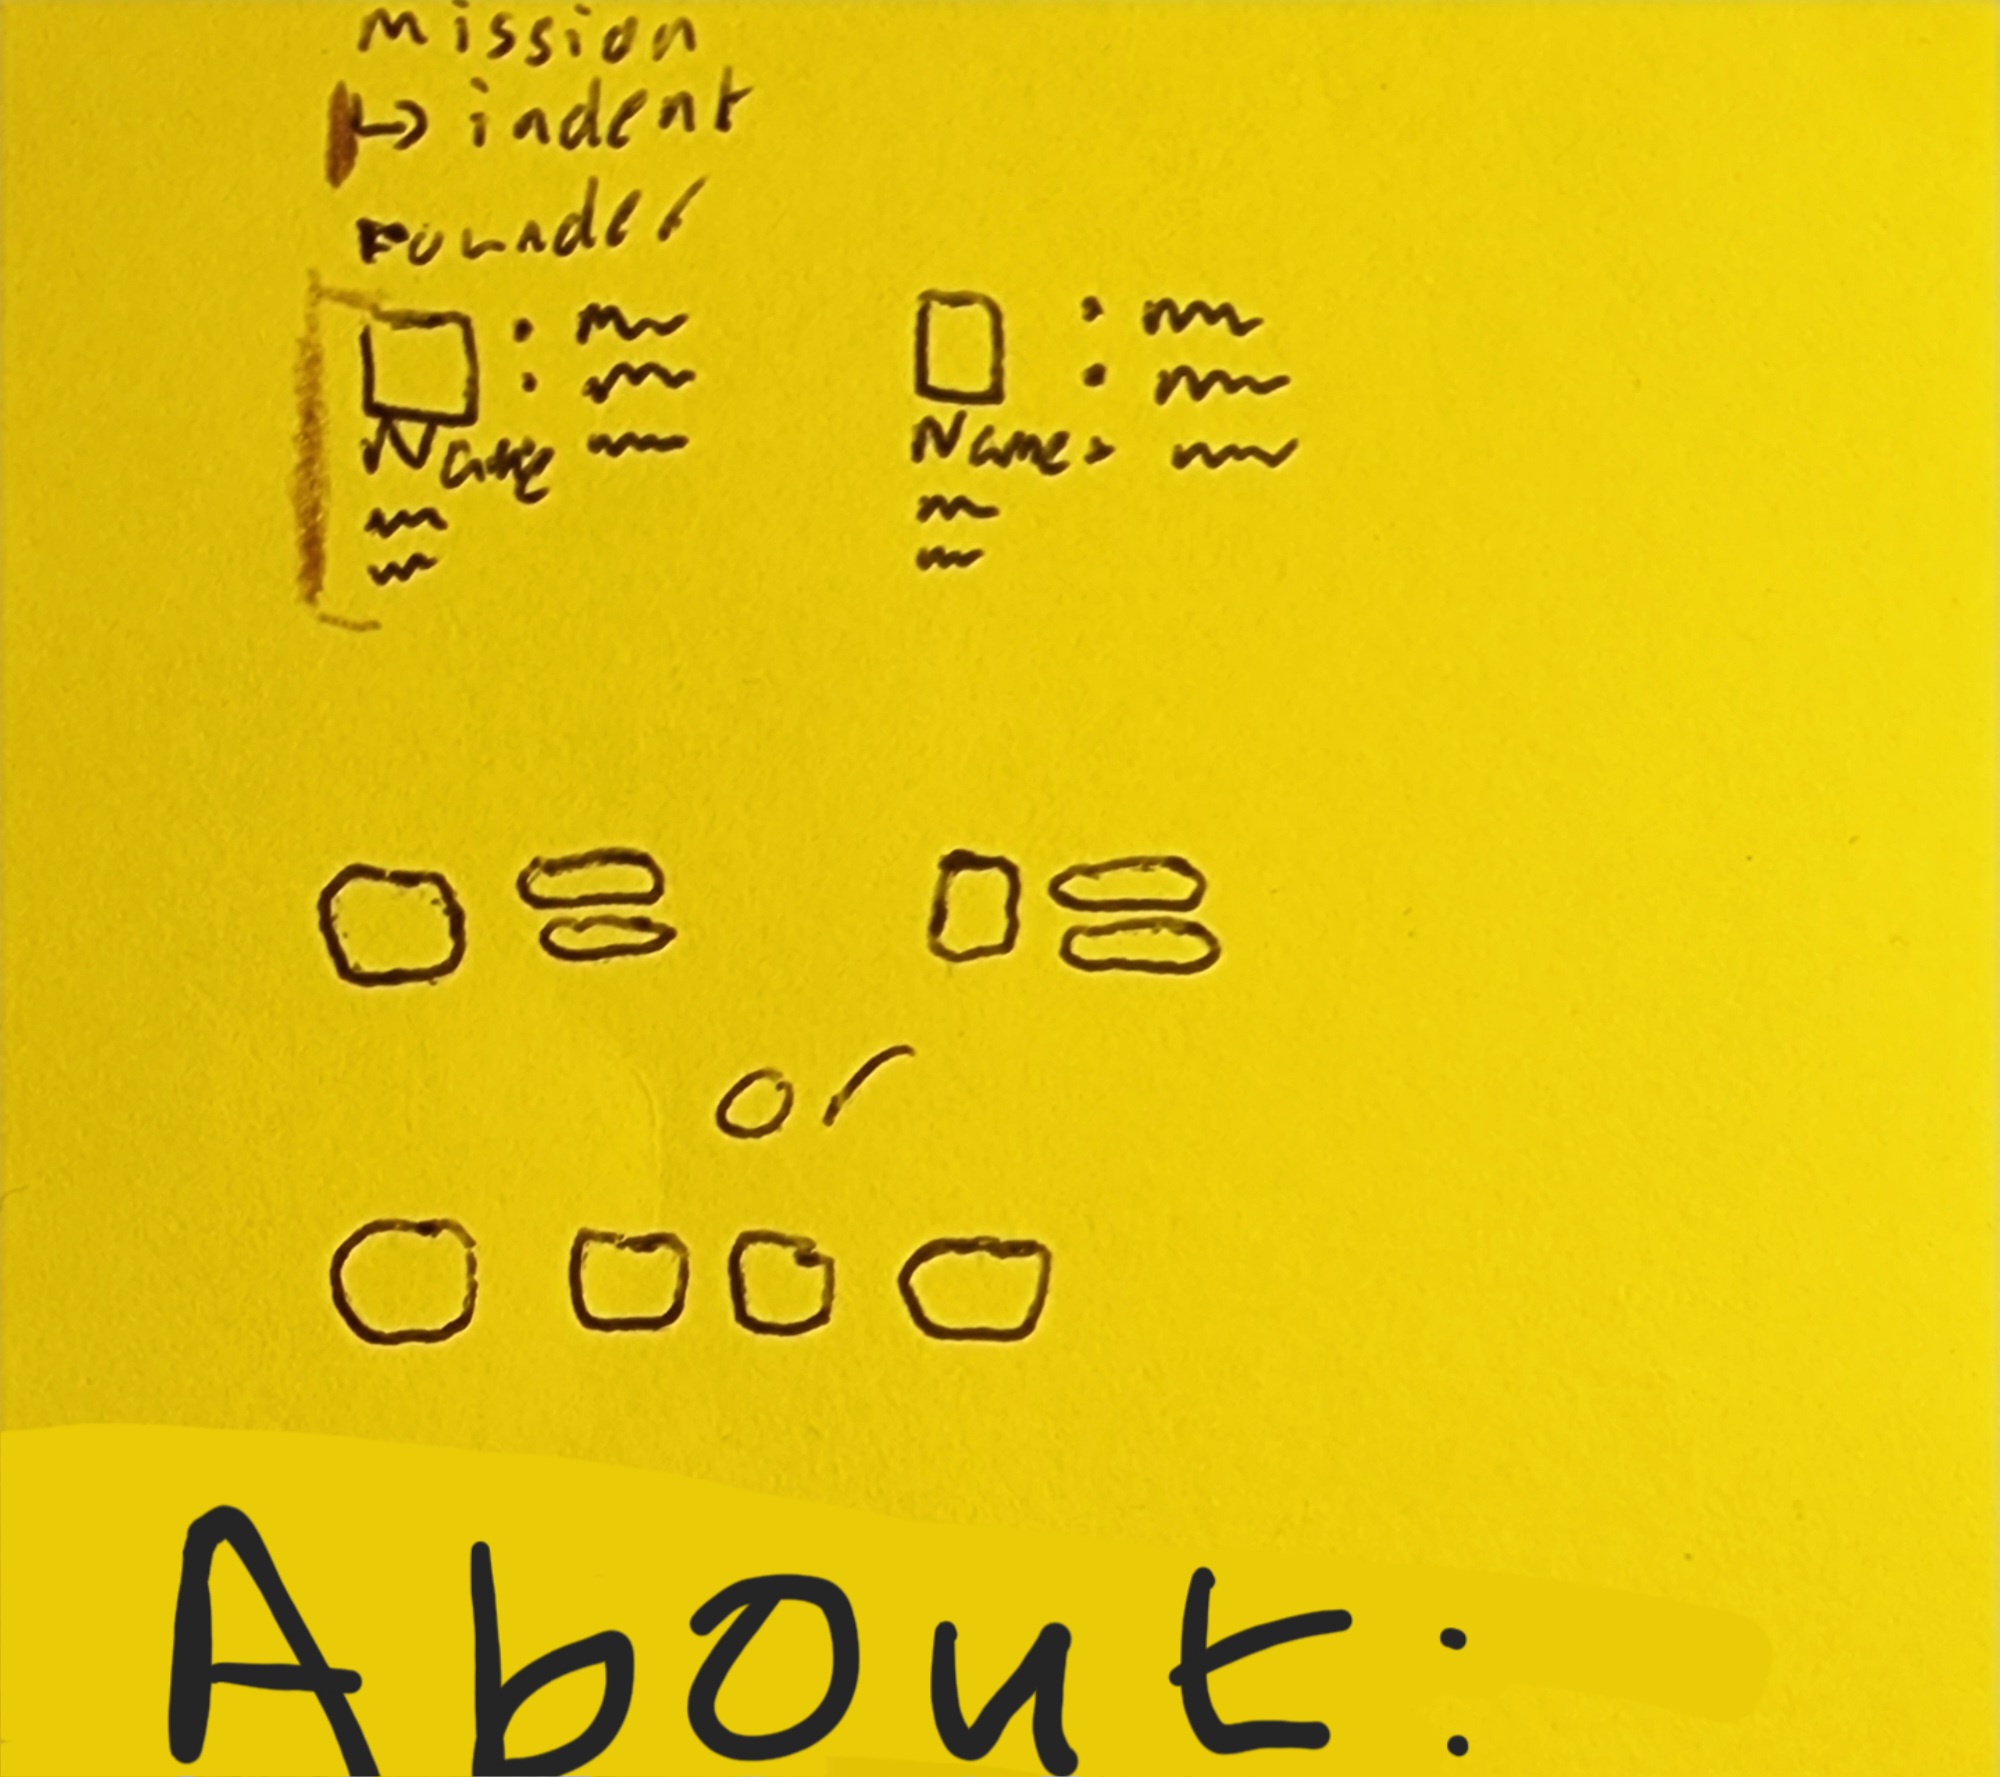 Mission
indent
Founder
Name Name
or
About: